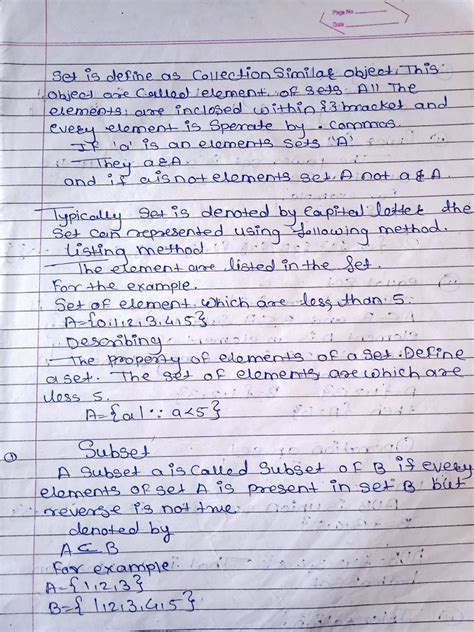 Page No
Date
Set is define as Collection Similar object. This
object are called element of sets. All The
elements are inclosed within {} bracket and
every element is Sperate by . Commas
If 'a' is an elements sets 'A'
They a&A.
and if a is not elements set A not a & A.
Typically Set is denoted by Capital letter the
Set can represented using following method.
Listing method
The element are listed in the Set.
For the example.
Set of element which are less than 5.
A={0,1,2,3,4,5}
Describing
The property of elements of a set. Define
a set. The set of elements are which are
less 5.
A={a| ∵ a<5}
Subset
A Subset a is Called Subset of B if every
elements of set A is present in set B but
reverse is not true.
denoted by
A⊂B
For example
A={1,2,3}
B={1,2,3,4,5}